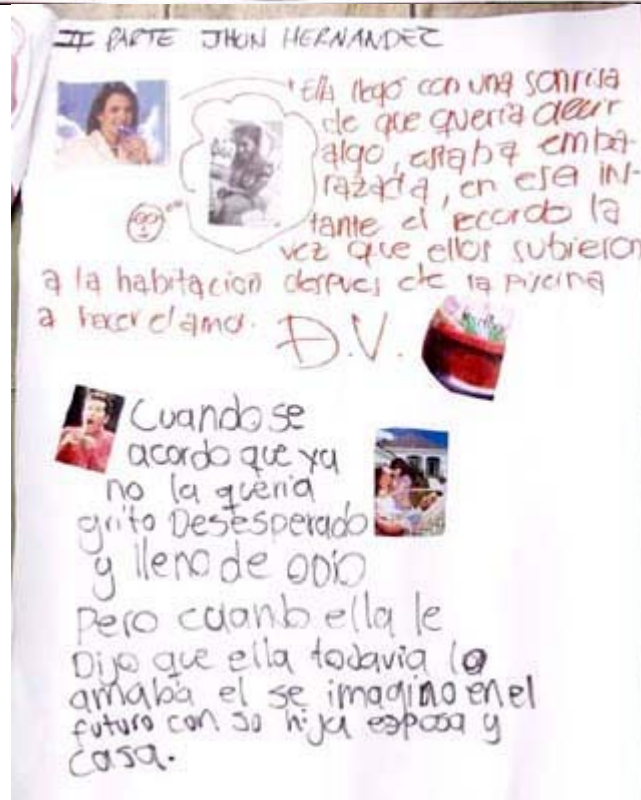 II PARTE JHON HERNANDEZ
Ella llegó con una sonrisa
de que queria decir
algo, estaba emba-
razada, en ese ins-
tante el recordo la
vez que ellos subieron
a la habitacion despues de la piscina
a hacer el amor. D.V.
Cuando se
acordo que ya
no la queria
grito Desesperado
y lleno de odio
Pero cuando ella le
Dijo que ella todavia lo
amaba el se imagino en el
futuro con su hija esposa y
casa.